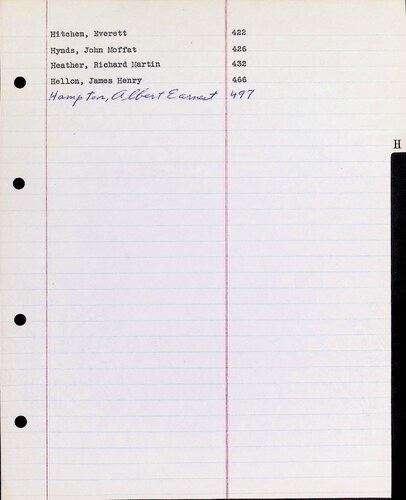 Hitchen, Everett 422
Hynds, John Moffat 426
Heather, Richard Martin 432
Hellon, James Henry 466
Hampton, Albert Earnest 497
H